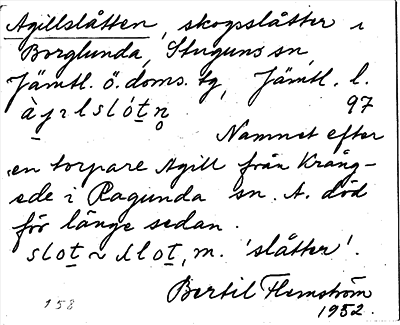 Agillslåtten, skogsslåtter i
Borglunda, Stuguns sn,
Jämtl. ö. doms. tg, Jämtl. l.
àɟɪlslót̠n̥ 97
Namnet efter
en torpare Agill från Kräng-
ede i Ragunda sn. A. död
för länge sedan.
slot̠ ~ ʃlot̠, m. 'slåtter'.
Bertil Flemström
158 1952.